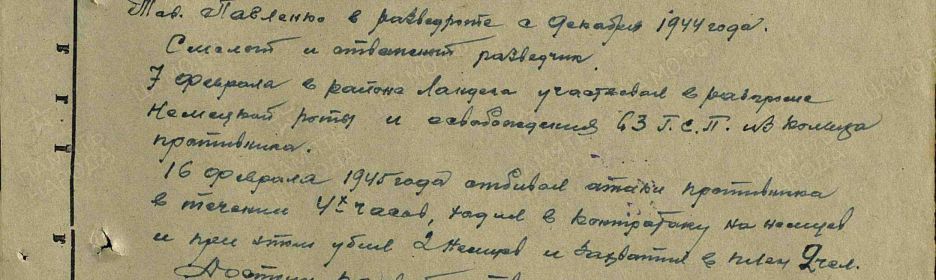 Тов. Павленко в разведроте с декабря 1944 года.
Смелый и отважный разведчик.
7 февраля в районе Ландека участвовал в разгроме
немецкой роты и освобождения 63 Г.С.П. из кольца
противника.
16 февраля 1945 года отбивал атаки противника
в течении 4х часов, ходил в контратаку на немцев
и при этом убил 2 немцев и захватил в плен 2 чел.
Достоин